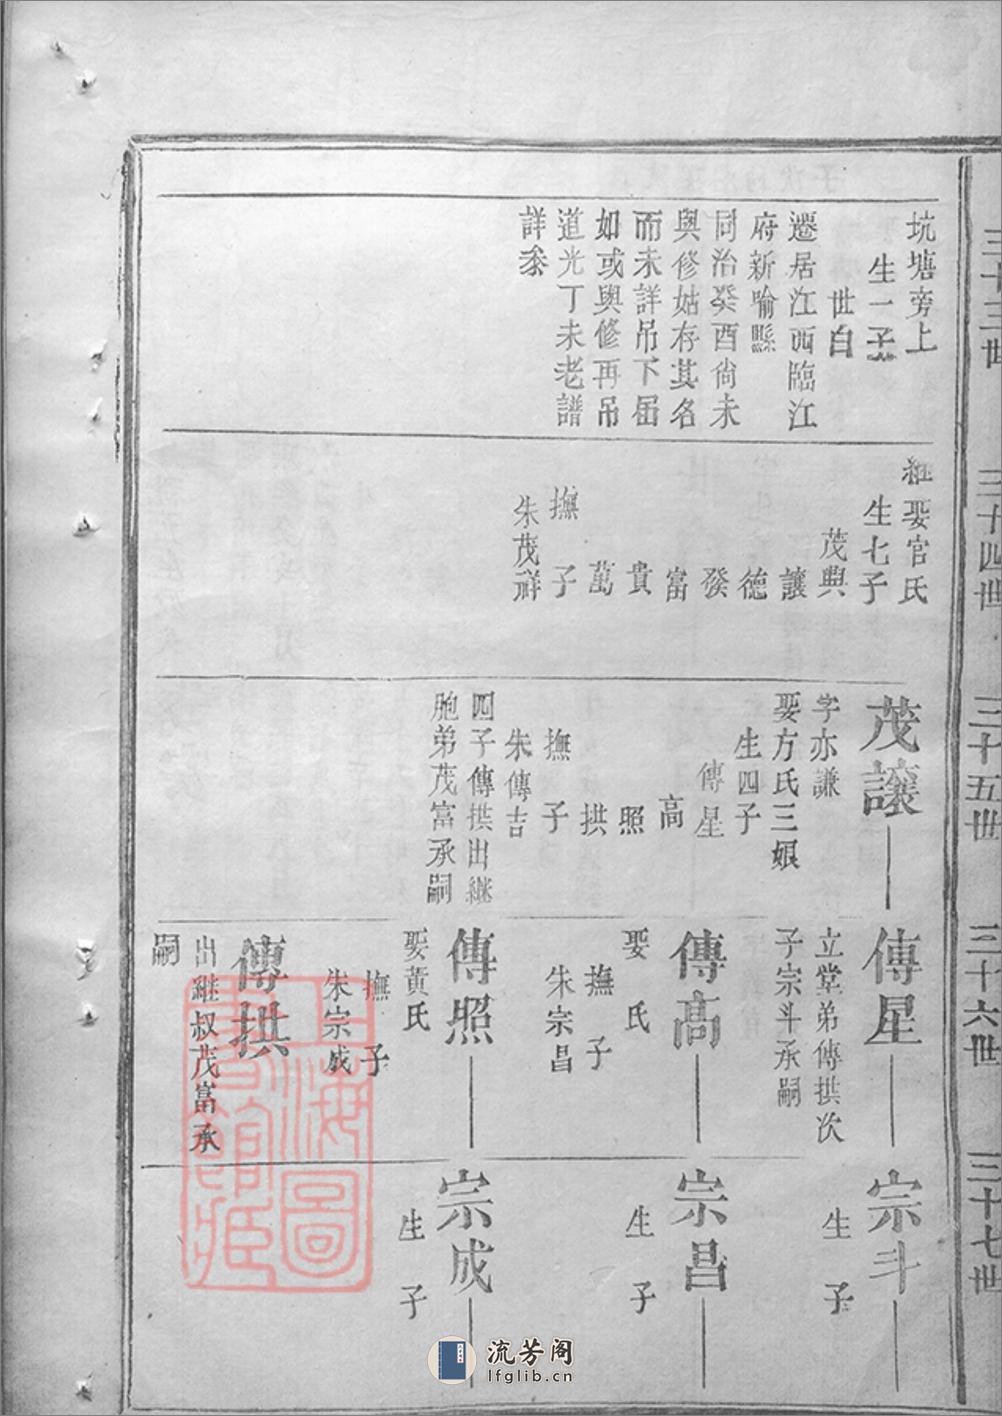 三十三世
坑塘旁上
生一子
世白
遷居江西臨江
府新喻縣
同治癸酉尚未
與修姑存其名
而未詳吊下屆
如或與修再吊
道光丁未老譜
詳忝
三十四世
娶官氏
生七子
茂與
讓
德
發
富
貴
萬
撫子
朱茂祥
三十五世
茂讓
字亦謙
娶方氏三娘
生四子
傳星
高
照
拱
撫子
朱傳吉
四子傳拱出繼
胞弟茂富承嗣
三十六世
傳星
立堂弟傳拱次
子宗斗承嗣
傳高
娶氏
撫子
朱宗昌
傳照
娶黃氏
撫子
朱宗成
傳拱
出繼叔茂富承
嗣
三十七世
宗斗
生子
宗昌
生子
宗成
生子
上海圖書館藏
流芳阁
lfglib.cn